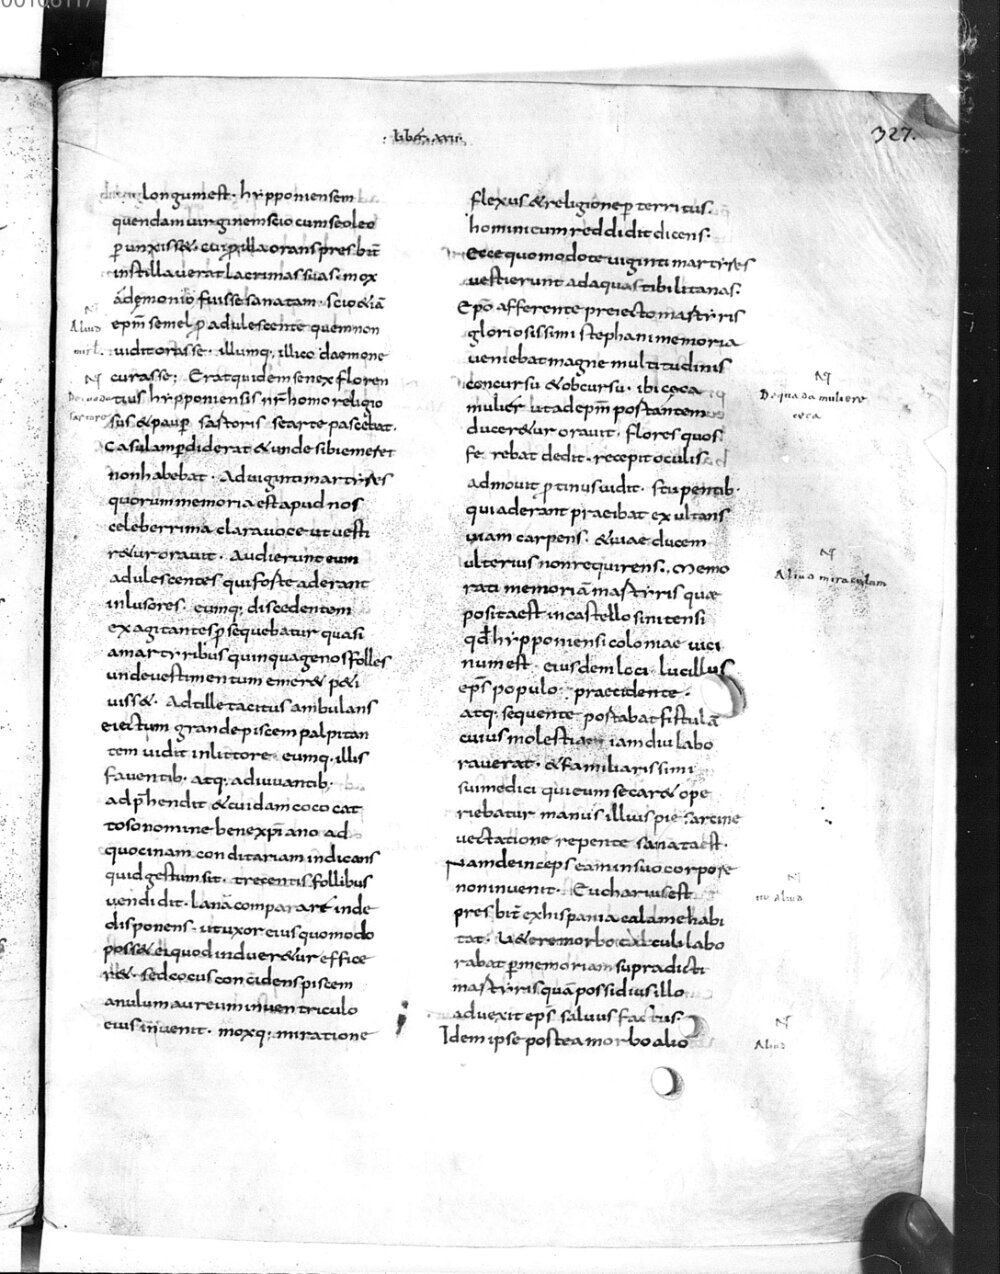 327.
longum est. hypponiensem
quendam uirginem scio cum se oleo
ꝑunxiss&. cui ꝓ illa orans presbit̄
instillauerat lacrimas suas. mox
á demonio fuisse sanatam. scio &iā
ep̄m semel ꝓ adulescente quem non
uidit orasse. illumq; illico daemone
curasse; Erat quidem senex floren
tius hypponiensis nr̄ homo religio
sus & pauꝑ sartoris se arte pascebat.
Casulam ꝑdiderat & unde sibi emeret
non habebat. Ad uiginti martyres
quorum memoria est apud nos
celeberrima clara uoce ut uesti
r&ur orauit. Audierunt eum
adulescentes qui forte aderant
inlusores. eumq; discedentem
exagitantes ꝓsequebatur quasi
a martyribus quinquagenos folles
unde uestimentum emer& p&i
uiss&. Ad ille tacitus ambulans
eiectum grande piscem palpitan
tem uidit in littore. eumq. illis
fauentib. atq; adiuuantib.
adp̄hendit & cuidam coco cat
toso nomine bene xp̄iano ad
quocinam conditariam indicans
quid gestum sit. trecentis follibus
uendidit. Lanā comparare inde
disponens. ut uxor eius quomodo
poss& ei quod induer&ur effice
r&. sed cocus concidens piscem
anulum aureum in uentriculo
eius inuenit. moxq; miratione
flexus & religione ꝑterritus.
homini eum reddidit dicens.
ecce quomodo te uiginti martyres
uestierunt ad aquas tibilitanas.
Ep̄o afferente preiecto martyris
gloriosissimi stephani memoria
ueniebat magne multitudinis
concursu & obcursu. ibi ceca
mulier ut ad ep̄m portantem
ducer&ur orauit. flores quos
ferebat dedit. recepit oculis
admouit ꝓtinus uidit. stupentib.
qui aderant praeibat exultans
uiam carpens. & uiae ducem
ulterius non requirens. Memo
rati memoriā martyris quae
posita est in castello sinitensi
qđ hypponiensi coloniae uici
num est. eiusdem loci lucillus
ep̄s populo praecidente.
atq; sequente portabat fistula
cuius molestiam iam diu labo
rauerat. & familiarissimi
sui medici qui eum secar& ope
riebatur manus illius pie sarcine
uectatione repente sanata est.
Nam deinceps eam in suo corpore
non inuenit. Eucharius est
presbit̄ ex hispania calame habi
tat. U&ere morbo calculi labo
rabat ꝑ memoriam supradicti
martyris quā possidius illo
aduexit ep̄s saluus factus.
Idem ipse postea morbo alio
Aliud
De quada muliere
ceca
Aliud miraculum
Aliud